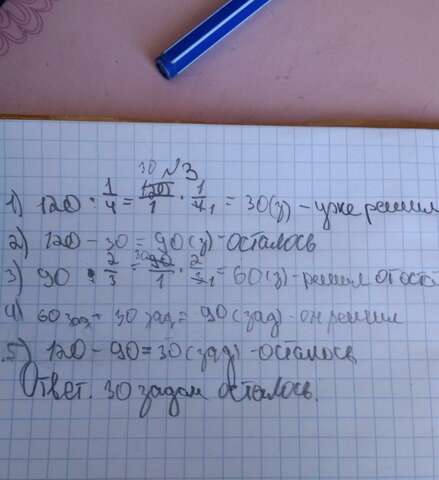 №3
1) 120 · 1/4 = 120/1 · 1/4 = 30(з) - уже решил
2) 120 - 30 = 90(з) - осталось
3) 90 · 2/3 = 90/1 · 2/3 = 60(з) - решил от ост
4) 60 зад + 30 зад = 90 (зад) - он решил
5) 120 - 90 = 30 (зад) - осталось
Ответ. 30 задач осталось.